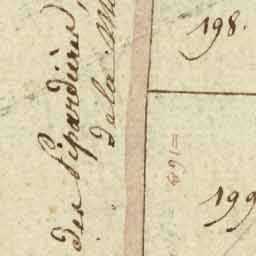 des Pipardières
de la
198.
199